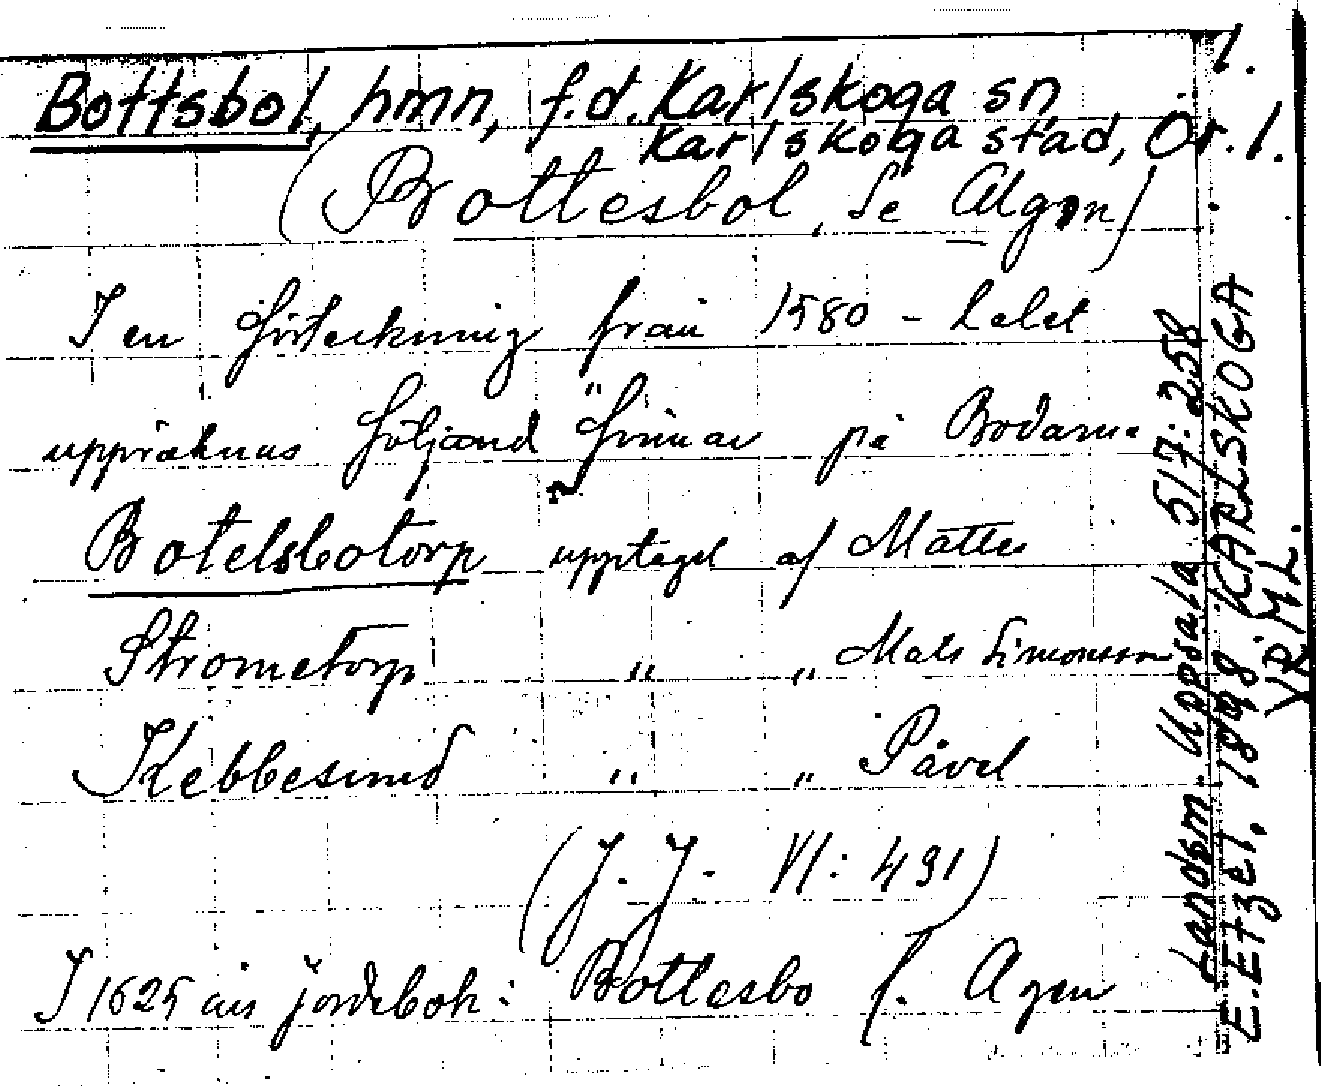 1.
Bottsbol, hmn, f.d. Karlskoga sn,
Karlskoga stad, Ör. l.
(Bottesbol, se Algen)
I en förteckning från 1580-talet
uppräknas följand "finnar på Bodarne
Botelsbotorp upptaget af Mattes
Strometorp " " Mats Simonsson
Kebbesund " " Påvel
(J. J. VI: 491)
I 1625 års jordebok: Bottesbo f. Agen
Landsm. Uppsala 517:258
E. Etzel, 1898. KARLSKOGA
VRML.